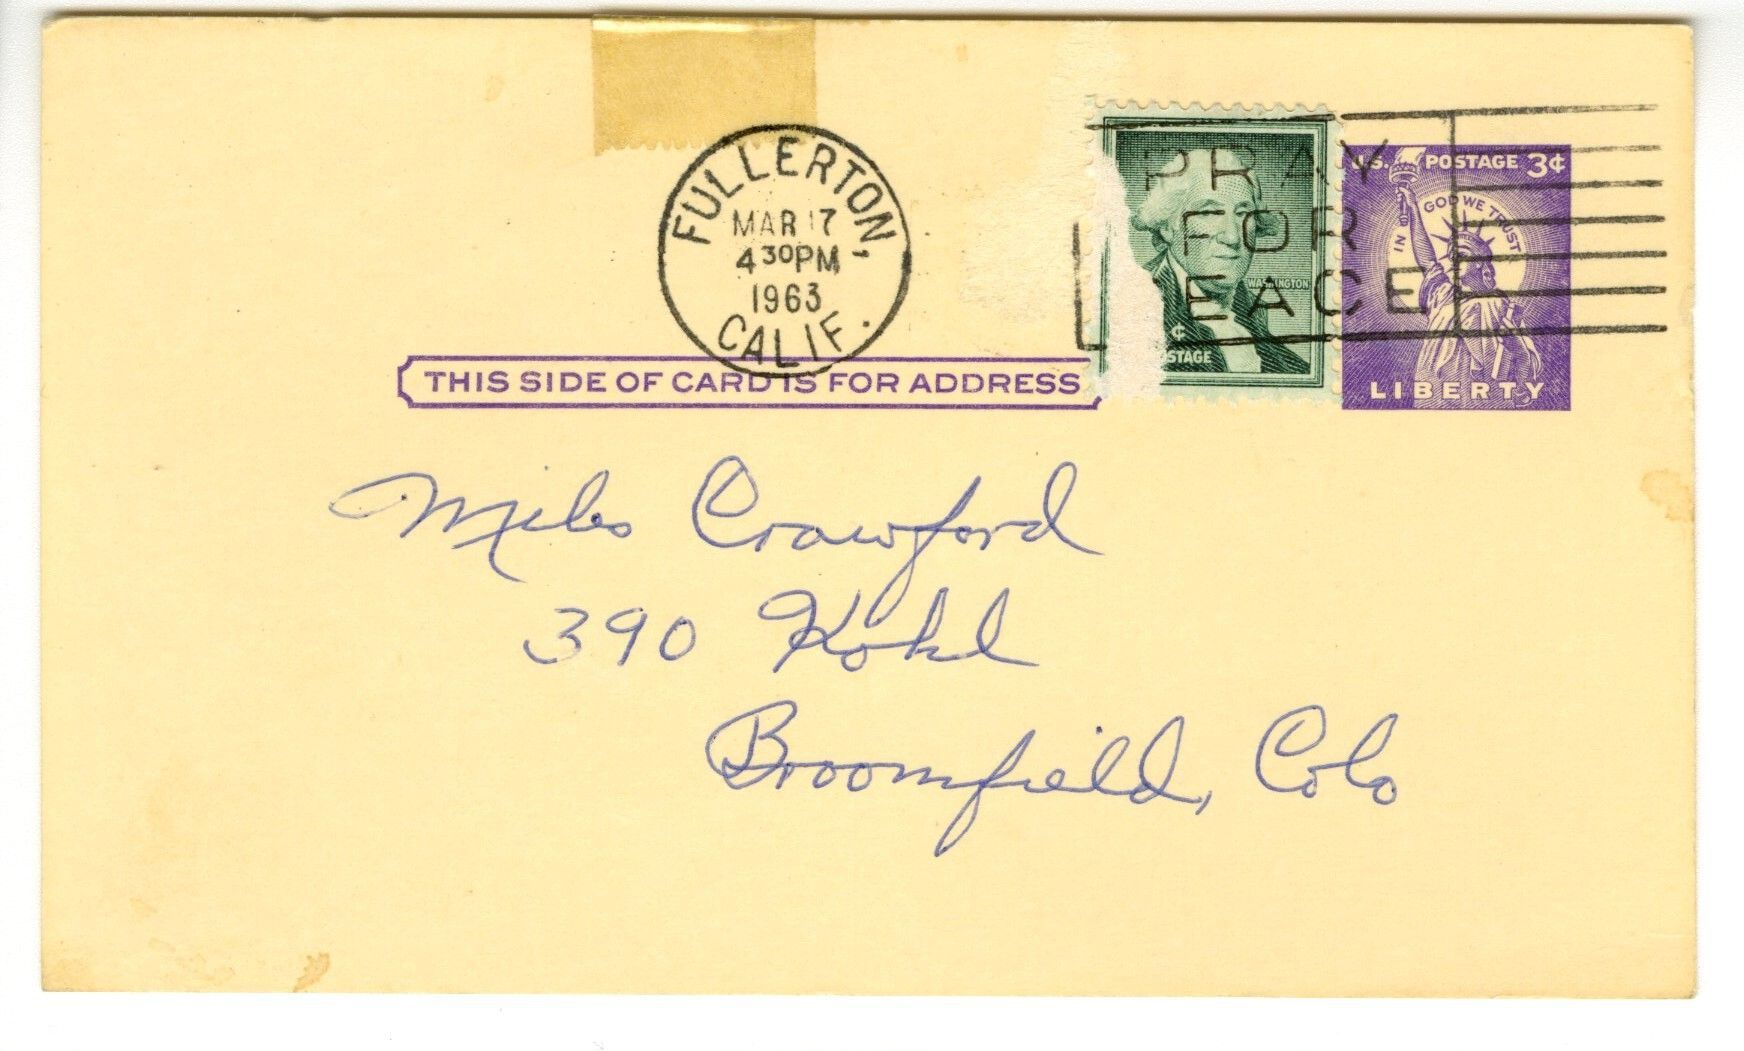 FULLERTON,
MAR 17
4 30 PM
1963
CALIF.
PRAY
FOR
EACE
WASHINGTON
¢
STAGE
U.S. POSTAGE 3¢
IN GOD WE TRUST
LIBERTY
THIS SIDE OF CARD IS FOR ADDRESS
Miles Crawford
390 Kohl
Broomfield, Colo